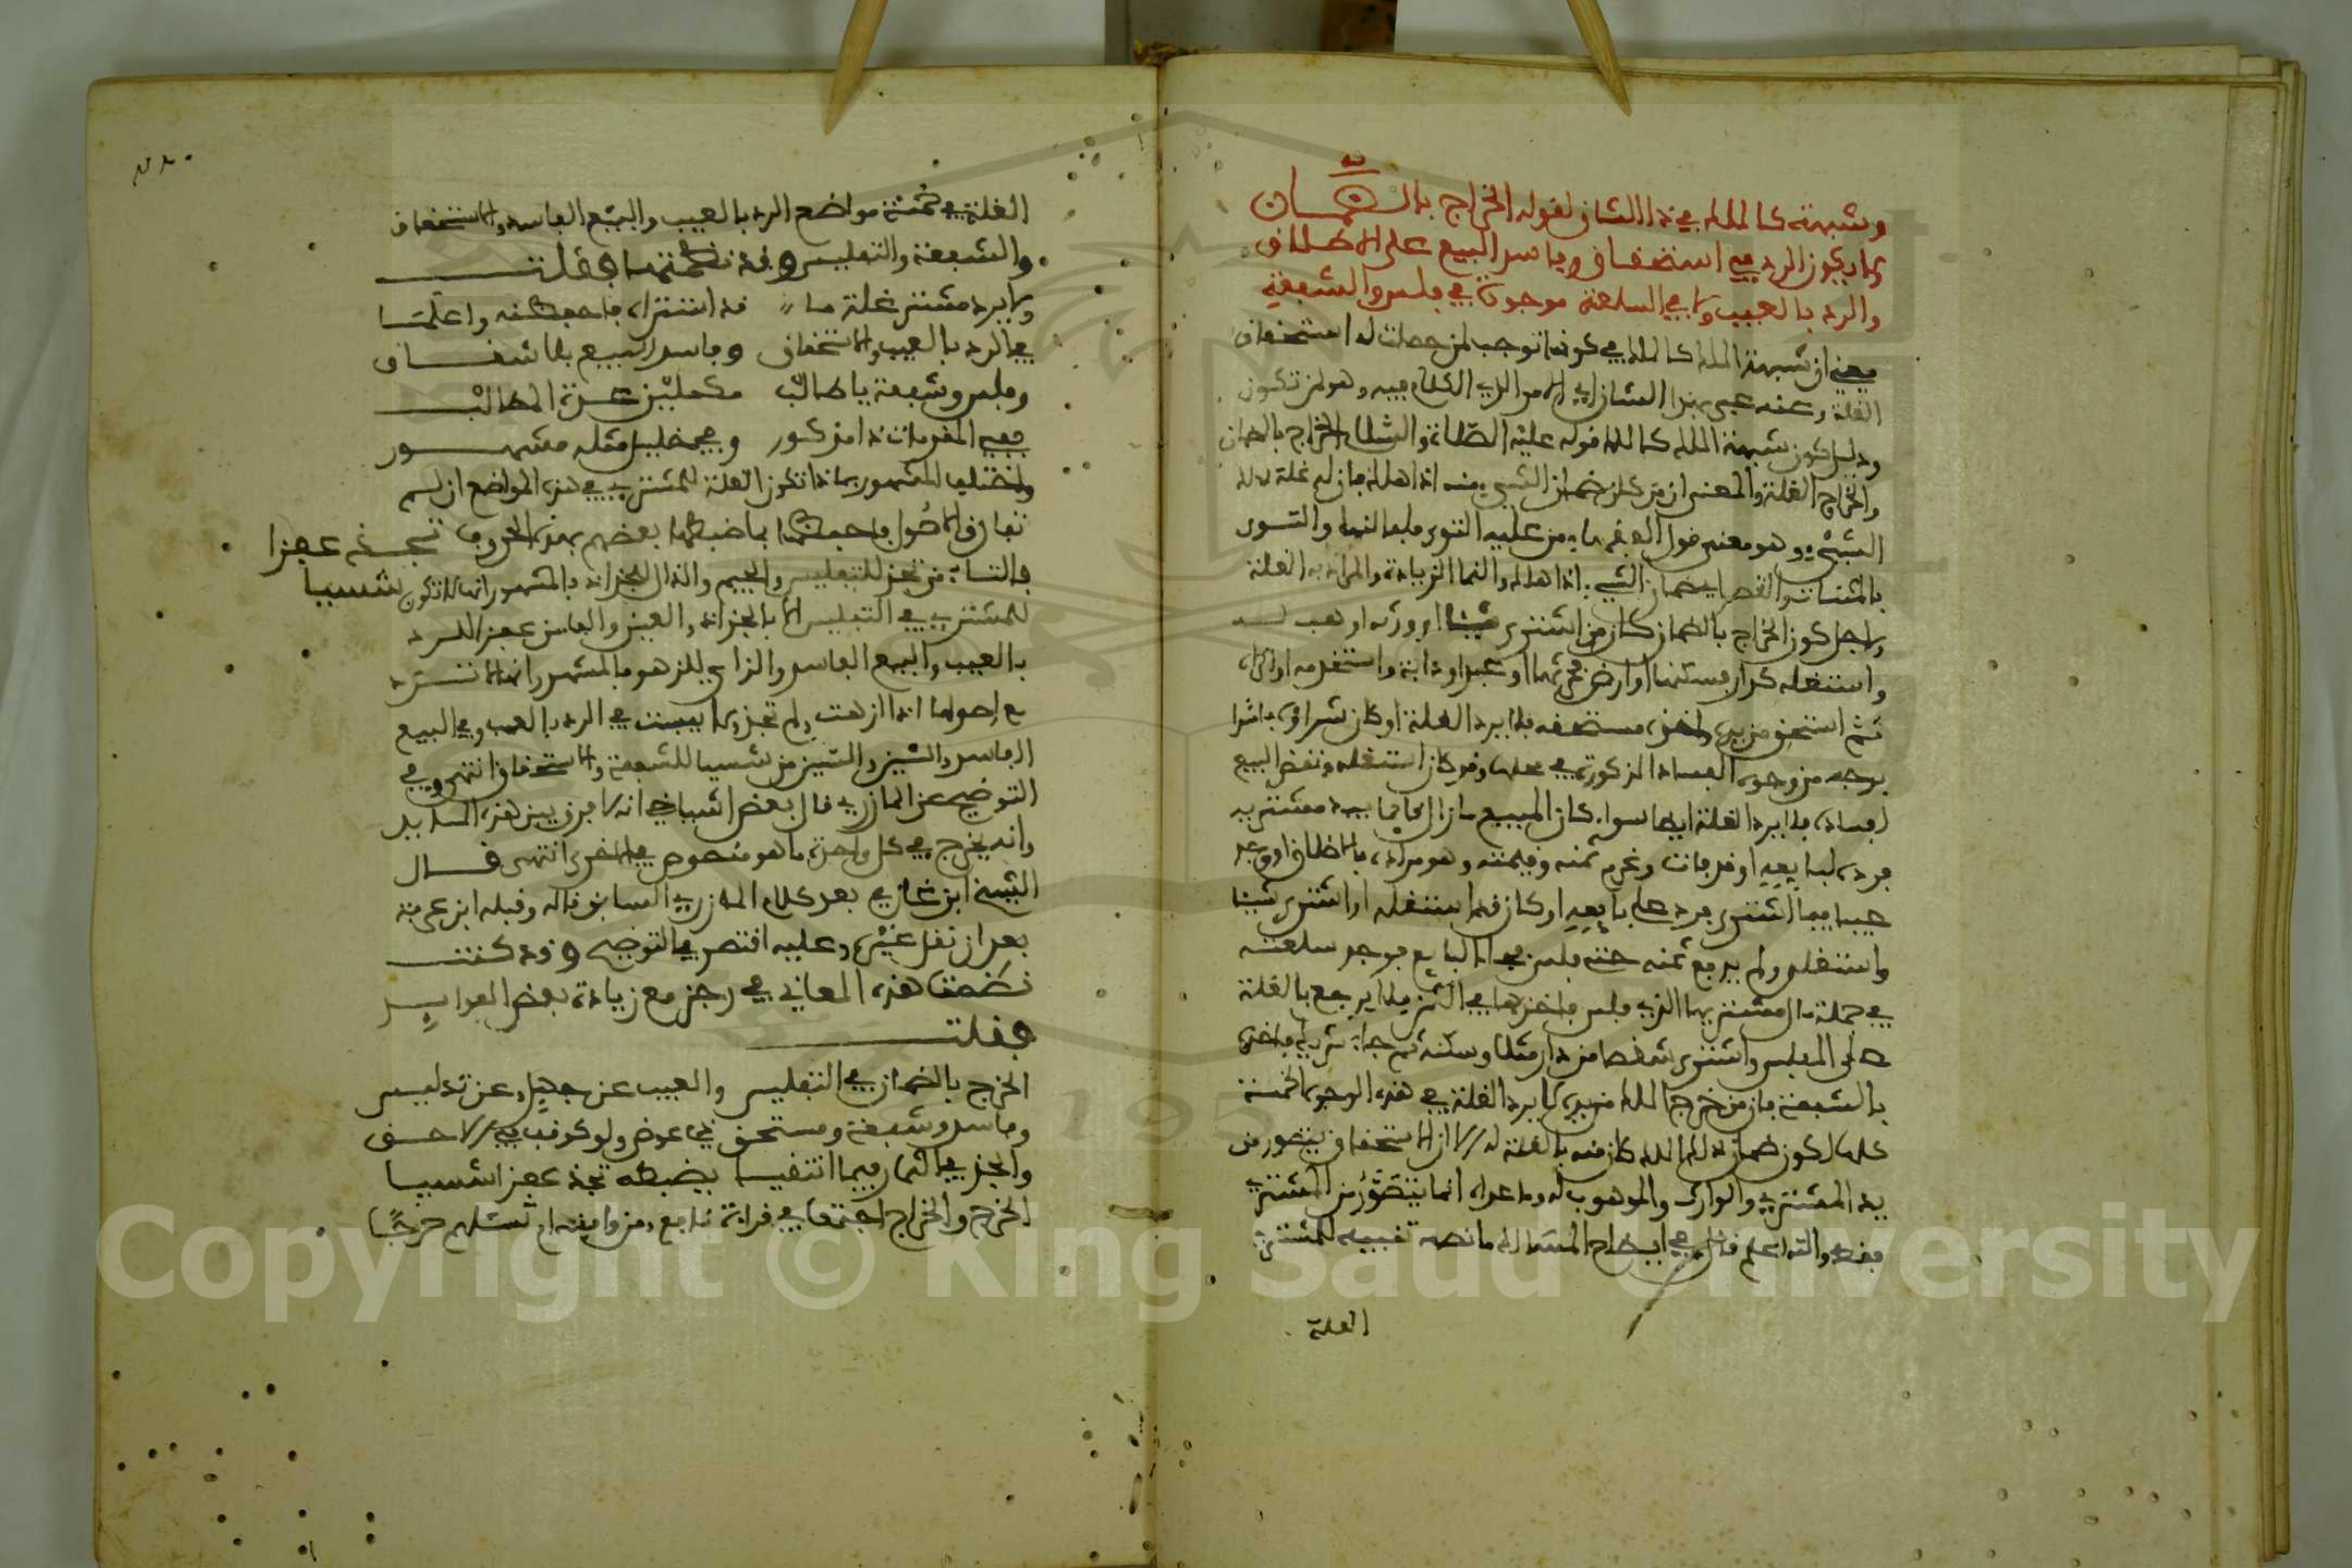 وشبهة كالملك في ذا الشان لقوله الخراج بالضمان
ولا يكون الرد في استحقاق وفاسد البيع على الاطلاق
والرد بالعيب ولا في السلعة موجودة في فلس والشفعة
يعني ان شبهة الملك كالملك في كونها توجب لمن حصلت له استحقاق
الغلة وعنه عبر بهذا الشان اي الامر الذي الكلام فيه وهو لمن تكون
ودليل كون شبهة الملك كالملك قوله عليه الصلاة والسلام الخراج بالضمان
والخراج الغلة والمعنى ان من كان ضمان الشيء منه اذا هلك فان له غلة ذلك
الشيء وهو معنى قول الفقهاء من عليه التوى فله النما والتوى
بالمثناة والقصر ضمان الشيء اذا هلك والنما الزيادة والمراد به الغلة
ولاجل كون الخراج بالضمان كان من اشترى شيئا او ورثه او وهب له
واستغله كدار سكنها او ارض حرثها او عبد او دابة واستخدمه او اكراه
ثم استحق من يده واخذه مستحقه فلا يرد الغلة او كان شراؤه فاسدا
بوجه من وجوه الفساد المذكورة في محلها وقد كان استغله ونقض البيع
لفساده فلا يرد الغلة ايضا سواء كان المبيع ما زال قائما بيد مشتريه
فرده لبايعه او قد فات وغرم ثمنه وقيمته وهو مراده بالاطلاق او وجد
عيبا فيما اشترى فرده على بايعه او كان قد استغله او اشترى شيئا
واستغله ولم يدفع ثمنه حتى فلس فجاء البايع فوجد سلعته
في جملة مال مشتريها الذي فلس فاخذها في الثمن فلا يرجع بالغلة
على المفلس واشترى شقصا من دار مثلا وسكنه ثم جاء شريكه فاخذه
بالشفعة فان من خرج الملك من يده لا يرد الغلة في هذه الوجوه الخمسة
كلها لكون ضمان ذلك الملك كان منه فالغلة له الا ان الاستحقاق يتصور من
يد المشتري والوارث والموهوب له وما عداه انما يتصور من المشتري
فقط والله اعلم قال في ايضاح المسالك ما نصه تنبيه للمشتري
الغلة
الغلة في خمسة مواضع الرد بالعيب والبيع الفاسد والاستحقاق
والشفعة والتفليس وقد نظمتها فقلت
ولا يرد مشتر غلة ما قد اشتراه فاحفظنه واعلما
في الرد بالعيب والاستحقاق وفاسد البيع بلا شقاق
وفلس وشفعة يا طالب مكملين عدة المطالب
ففي المقدمات ذا مذكور وفي خليل مثله مشهور
واختلف المشهور بماذا تكون الغلة للمشتري في هذه المواضع ان لم
تفارق الاصول فاحفظها بما ضبطها بعضهم بهذه الحروف تجد عفزا شسيا
فالتاء من تجذ للتفليس والجيم والذال للجذاذ فالمشهور انها لا تكون
للمشتري في التفليس الا بالجذاذ والعين والفاء من عفزا للرد
بالعيب والبيع الفاسد والزاي للزهو فالمشهور انها لا تسترد
مع اصولها اذا ازهت ولم تجذ ولا يبست في الرد بالعيب وفي البيع
الفاسد والشين والسين من شسيا للشفعة والاستحقاق انتهى وفي
التوضيح عن المازري قال بعض اشياخي انه لا فرق بين هذه المسائل
وانه يخرج في كل واحدة ما هو منصوص في الاخرى انتهى قال
الشيخ ابن غازي بعد كلام المازري السابق قاله وقبله ابن عرفة
بعد ان نقل غيره وعليه اقتصر في التوضيح وقد كنت
نظمت هذه المعاني في رجز مع زيادة بعض الفوايد
فقلت
الخرج بالضمان في التفليس والعيب عن جهل وعن تدليس
وفاسد وشفعة ومستحق ذي عوض ولو كوقف في الاحق
والجذ في الثمار فيما انتفيا يضبطه تجذ عفزا شسيا
الخرج والخراج اجتمعا في قراءة نافع ومن وافقه ام تسئلهم خرجا